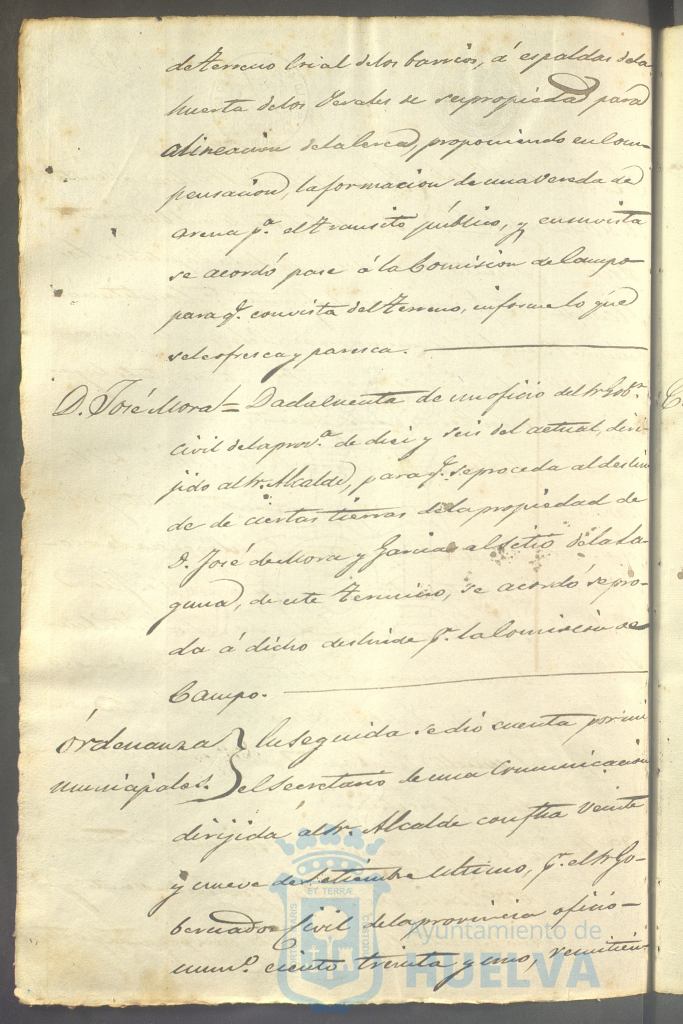 de terreno Erial de los barrios, á espaldas de la
huerta de los Perales de su propiedad para
alineacion de la Cerca, proponiendo en Com-
pensacion, la formacion de una vereda de
arena p.ª el transito público, y en su vista
se acordó pase á la Comision de Campo
para q.e con vista del terreno, informe lo que
se le ofresca y paresca.
D. José Mora = Dada Cuenta de un oficio del Sr. Gob.r
Civil de la prov.ª de diez y seis del actual, diri-
jido al Sr. Alcalde, para q.e se proceda al deslin-
de de ciertas tierras de la propiedad de
D. José de Mora y Garcia al Sitio de la La-
guna, de este termino, se acordó se pro-
da á dicho deslinde p.r la Comision de
Campo.
órdenanzas municipales. } En seguida se dio cuenta por mi
el Secretario de una Comunicacion
dirijida al Sr. Alcalde con fha veinte
y nueve de Setiembre ultimo, p.r el Sr. Go-
bernador Civil de la provincia oficio
num.o ciento treinta y uno, remitien-
Ayuntamiento de
HUELVA